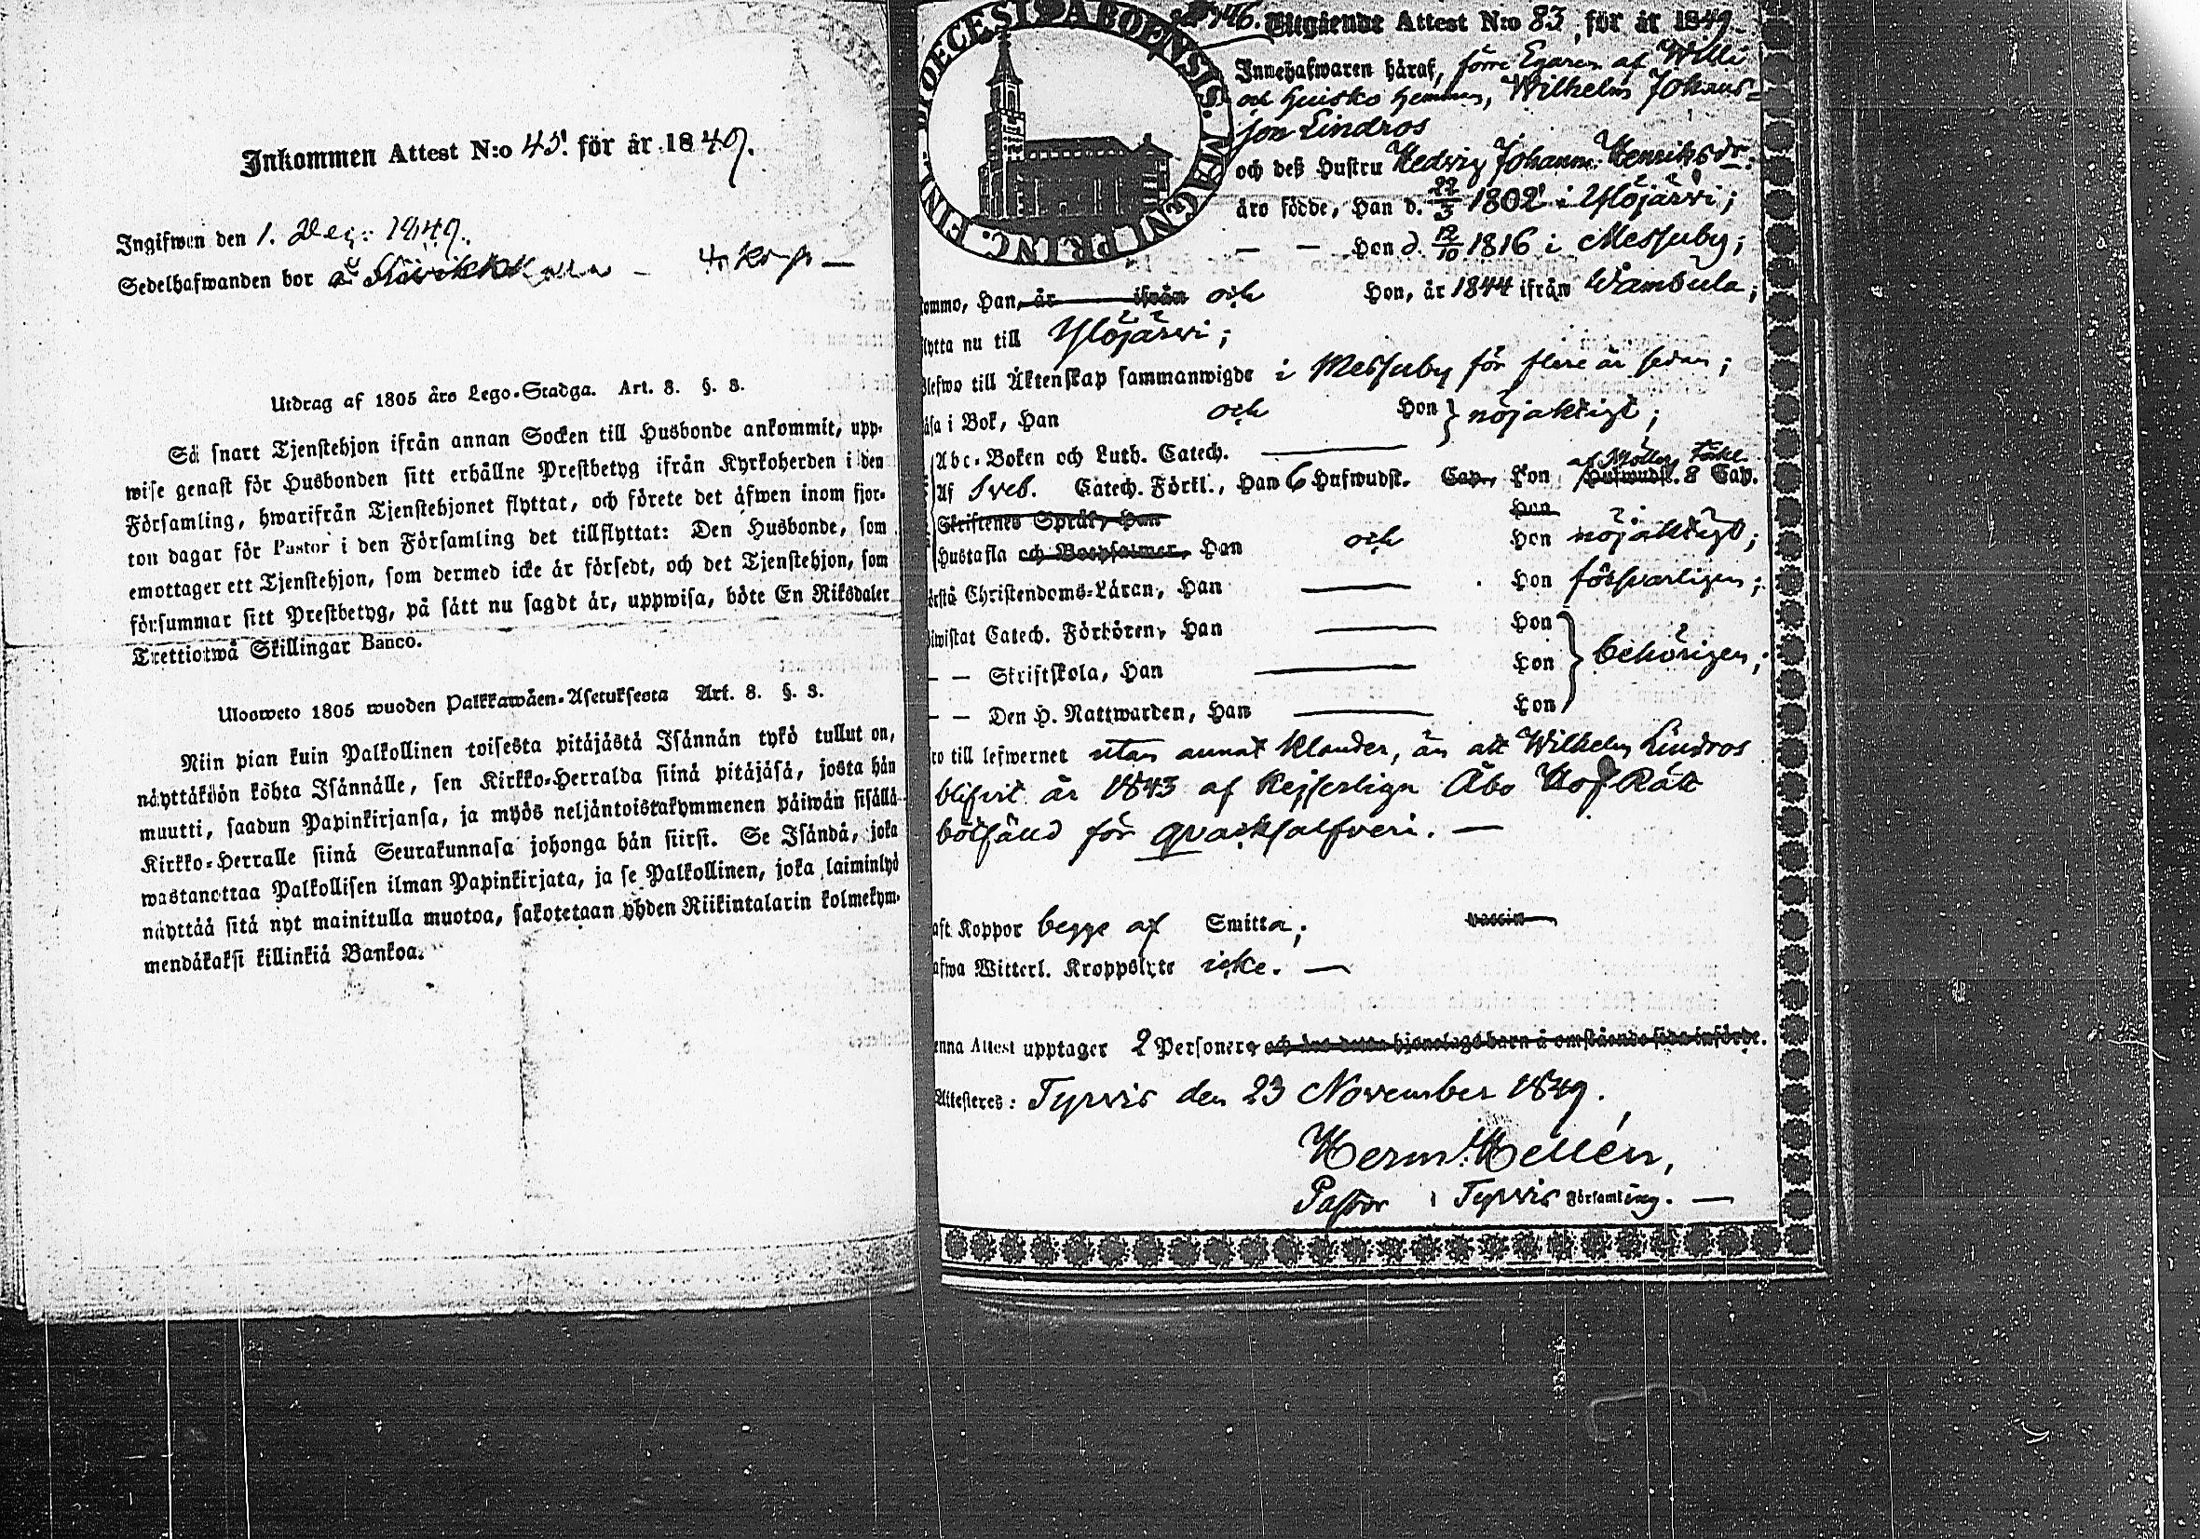 Inkommen Attest N:o 45. för år 1849.
Ingifwen den 1. Dec: 1849.
Sedelhafwanden bor å
Utdrag af 1805 års Lego-Stadga. Art. 8. §. 8.
Så snart Tjenstehjon ifrån annan Socken till Husbonde ankommit, upp-
wise genast för Husbonden sitt erhållne Prestbetyg ifrån Kyrkoherden i den
Församling, hwarifrån Tjenstehjonet flyttat, och förete det äfwen inom fjor-
ton dagar för Pastor i den Församling det tillflyttat: Den Husbonde, som
emottager ett Tjenstehjon, som dermed icke är försedt, och det Tjenstehjon, som
försummar sitt Prestbetyg, på sätt nu sagdt är, uppwisa, böte En Riksdaler
Trettiotwå Skillingar Banco.
Ulosweto 1805 wuoden Palkkawäen-Asetuksesta Art. 8. §. 8.
Niin pian kuin Palkollinen toisesta pitäjästä Isännän tykö tullut on,
näyttäköön kohta Isännälle, sen Kirkko-Herralda siinä pitäjäsä, josta hän
muutti, saadun Papinkirjansa, ja myös neljäntoistakymmenen päiwän sisällä
Kirkko-Herralle siinä Seurakunnasa johonga hän siirsi. Se Isändä, joka
wastanottaa Palkollisen ilman Papinkirjata, ja se Palkollinen, joka laiminlyö
näyttää sitä nyt mainitulla muotoa, sakotetaan yhden Riikintalarin kolmekym-
mendäkaksi killinkiä Bankoa.
DIOECESIS ABOENSIS. MAGNI PRINC. FINL.
746. Utgående Attest N:o 83, för år 1849.
Innehafwaren häraf, förre Egaren af Willi
och Huisko Hemman, Wilhelm Johans-
son Lindros
och deß Hustru Hedvig Johanna Henriksdr.
äro födde, Han d. 22/3 1802 i Ylöjärvi;
— — Hon d. 12/10 1816 i Messuby;
kommo, Han, är ifrån och Hon, år 1844 ifrån Wambula;
flytta nu till Ylöjärvi;
Blefwo till Äktenskap sammanwigde i Messuby för flere år sedan;
läsa i Bok, Han och Hon } nöjaktigt;
Abc-Boken och Luth. Catech. —
af Möllers Förkl.
Af Sveb. Catech. Förkl., Han 6 Hufwudst. Cap., Hon Hufwudst. 8 Cap.
Skriftenes Språk, Han Hon
Hustafla och Botpsalmer, Han och Hon nöjaktigt;
förstå Christendoms-Läran, Han — Hon försvarligen;
biwistat Catech. Förhören, Han — Hon
— — Skriftskola, Han — Hon } behörigen;
— — Den H. Nattwarden, Han — Hon
äro till lefwernet utan annat klander, än att Wilhelm Lindros
blifvit år 1843 af Kejserliga Åbo Hof Rätt
bötfäld för qvacksalfveri. —
haft Koppor begge af Smitta; vaccin
hafwa Witterl. Kroppslyte icke. —
Denna Attest upptager 2 Personer, och äro detta hjonelags barn å omstående sida införde.
Attesteres: Tyrvis den 23 November 1849.
Herm: Hellén,
Pastor i Tyrvis Församling. —